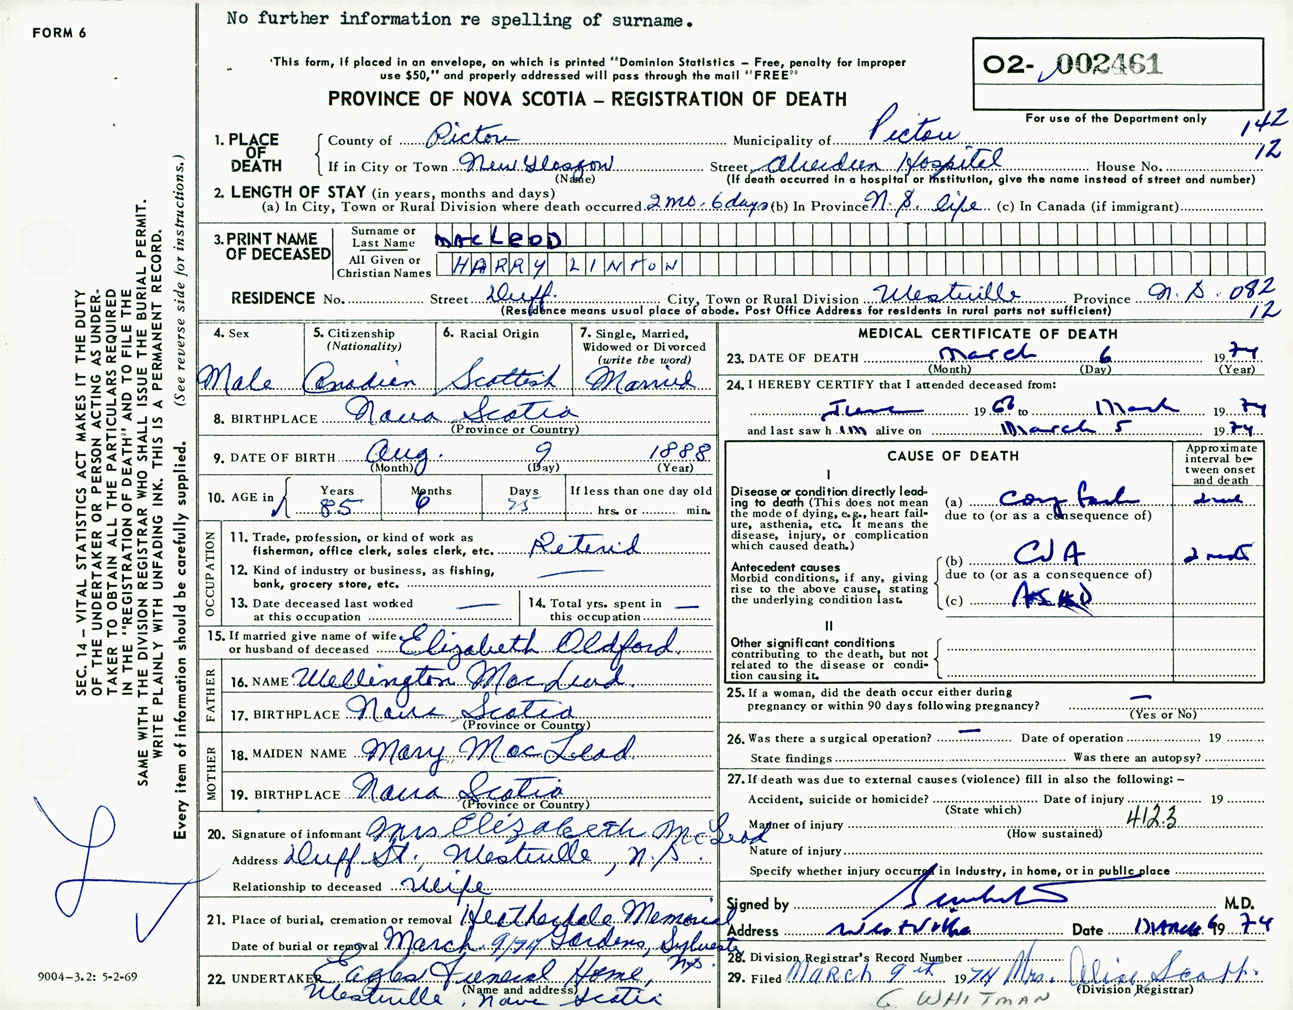 No further information re spelling of surname.
FORM 6
"This form, if placed in an envelope, on which is printed "Dominion Statistics – Free, penalty for improper
use $50," and properly addressed will pass through the mail "FREE"
PROVINCE OF NOVA SCOTIA – REGISTRATION OF DEATH
O2- 002461
For use of the Department only
142
12
SEC. 14 – VITAL STATISTICS ACT MAKES IT THE DUTY
OF THE UNDERTAKER OR PERSON ACTING AS UNDER-
TAKER TO OBTAIN ALL THE PARTICULARS REQUIRED
IN THE "REGISTRATION OF DEATH" AND TO FILE THE
SAME WITH THE DIVISION REGISTRAR WHO SHALL ISSUE THE BURIAL PERMIT.
WRITE PLAINLY WITH UNFADING INK. THIS IS A PERMANENT RECORD.
Every item of information should be carefully supplied. (See reverse side for instructions.)
1. PLACE OF DEATH
County of Pictou Municipality of Pictou
If in City or Town New Glasgow Street Aberdeen Hospital House No.
(Name) (If death occurred in a hospital or institution, give the name instead of street and number)
2. LENGTH OF STAY (in years, months and days)
(a) In City, Town or Rural Division where death occurred 2 mo. 6 days (b) In Province N.S. life (c) In Canada (if immigrant)
3. PRINT NAME OF DECEASED
Surname or Last Name MACLEOD
All Given or Christian Names HARRY LINTON
RESIDENCE No. Street Duff. City, Town or Rural Division Westville Province N.S. 082
(Residence means usual place of abode. Post Office Address for residents in rural parts not sufficient) 12
4. Sex
Male
5. Citizenship
(Nationality)
Canadian
6. Racial Origin
Scottish
7. Single, Married,
Widowed or Divorced
(write the word)
Married
8. BIRTHPLACE Nova Scotia
(Province or Country)
9. DATE OF BIRTH Aug. 9 1888
(Month) (Day) (Year)
10. AGE in Years Months Days If less than one day old
85 6 25 hrs. or min.
OCCUPATION
11. Trade, profession, or kind of work as
fisherman, office clerk, sales clerk, etc. Retired
12. Kind of industry or business, as fishing,
bank, grocery store, etc. —
13. Date deceased last worked
at this occupation —
14. Total yrs. spent in
this occupation —
15. If married give name of wife
or husband of deceased Elizabeth Oldford.
FATHER
16. NAME Wellington MacLeod.
17. BIRTHPLACE Nova Scotia
(Province or Country)
MOTHER
18. MAIDEN NAME Mary MacLeod
19. BIRTHPLACE Nova Scotia
(Province or Country)
20. Signature of informant Mrs Elizabeth McLeod
Address Duff St., Westville, N.S.
Relationship to deceased Wife
21. Place of burial, cremation or removal Heatherdale Memorial
Date of burial or removal March 9/74 Gardens, Sylvester
N.S.
22. UNDERTAKER Eagles Funeral Home,
(Name and address)
Westville, Nova Scotia
9004-3.2: 5-2-69
MEDICAL CERTIFICATE OF DEATH
23. DATE OF DEATH March 6 1974
(Month) (Day) (Year)
24. I HEREBY CERTIFY that I attended deceased from:
June 19 to March 1974
and last saw h im alive on March 5 1974
CAUSE OF DEATH
Approximate interval between onset and death
I
Disease or condition directly lead-
ing to death (This does not mean
the mode of dying, e.g., heart fail-
ure, asthenia, etc. It means the
disease, injury, or complication
which caused death.)
(a)
due to (or as a consequence of)
Antecedent causes
Morbid conditions, if any, giving
rise to the above cause, stating
the underlying condition last.
(b) CVA
due to (or as a consequence of)
(c) ASHD
II
Other significant conditions
contributing to the death, but not
related to the disease or condi-
tion causing it.
25. If a woman, did the death occur either during
pregnancy or within 90 days following pregnancy? —
(Yes or No)
26. Was there a surgical operation? — Date of operation 19
State findings Was there an autopsy?
27. If death was due to external causes (violence) fill in also the following: –
Accident, suicide or homicide? Date of injury 19
(State which)
Manner of injury 4123
(How sustained)
Nature of injury
Specify whether injury occurred in Industry, in home, or in public place
Signed by M.D.
Address Westville Date March 6 1974
28. Division Registrar's Record Number
29. Filed March 9th 1974 Mrs. Alice Scott.
(Division Registrar)
G WHITMAN